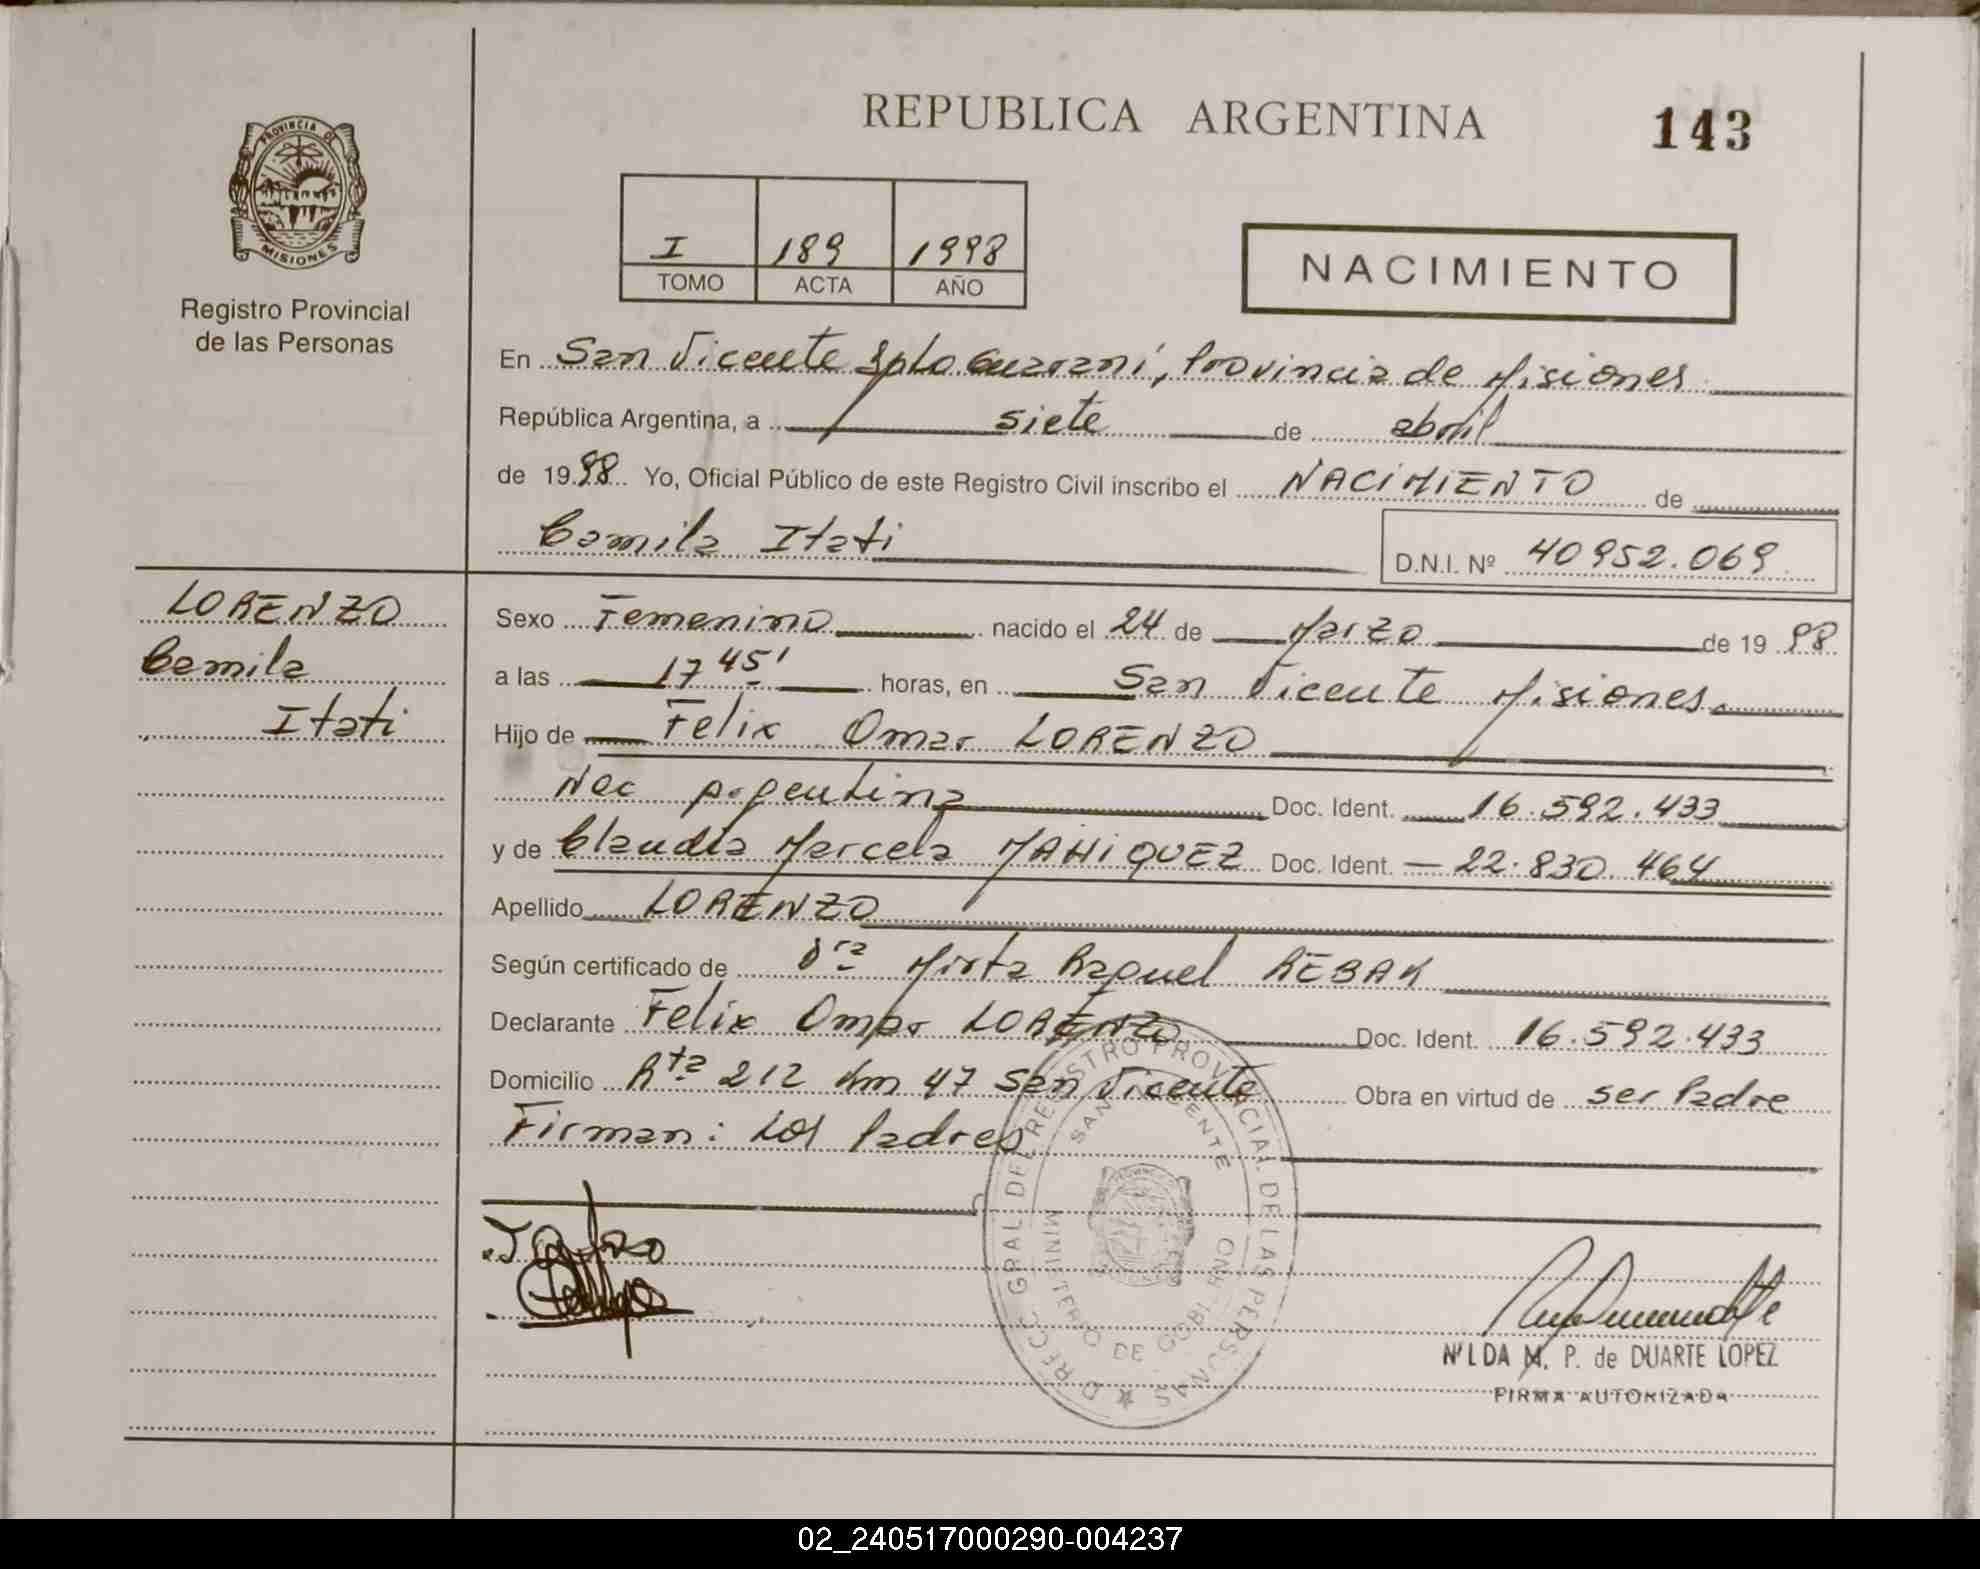 REPUBLICA ARGENTINA
143
PROVINCIA DE
MISIONES
Registro Provincial
de las Personas
I 189 1998
TOMO ACTA AÑO
NACIMIENTO
En San Vicente Dpto Guarani, Provincia de Misiones
República Argentina, a siete de abril
de 1998 Yo, Oficial Público de este Registro Civil inscribo el NACIMIENTO de
Camila Itati
D.N.I. Nº 40952.069
LORENZO
Camila
Itati
Sexo Femenino nacido el 24 de Marzo de 1998
a las 17 45' horas, en San Vicente Misiones.
Hijo de Felix Omar LORENZO
Nac Argentina Doc. Ident. 16.592.433
y de Claudia Marcela MAHIQUEZ Doc. Ident. 22.830.464
Apellido LORENZO
Según certificado de Dra Mirta Raquel REBAK
Declarante Felix Omar LORENZO Doc. Ident. 16.592.433
Domicilio Rta 212 Km 47 San Vicente Obra en virtud de ser Padre
Firman: Los Padres
DIRECC. GRAL. DEL REGISTRO PROVINCIAL DE LAS PERSONAS
SAN VICENTE
MINISTERIO DE GOBIERNO
NILDA M. P. de DUARTE LOPEZ
FIRMA AUTORIZADA
02_240517000290-004237